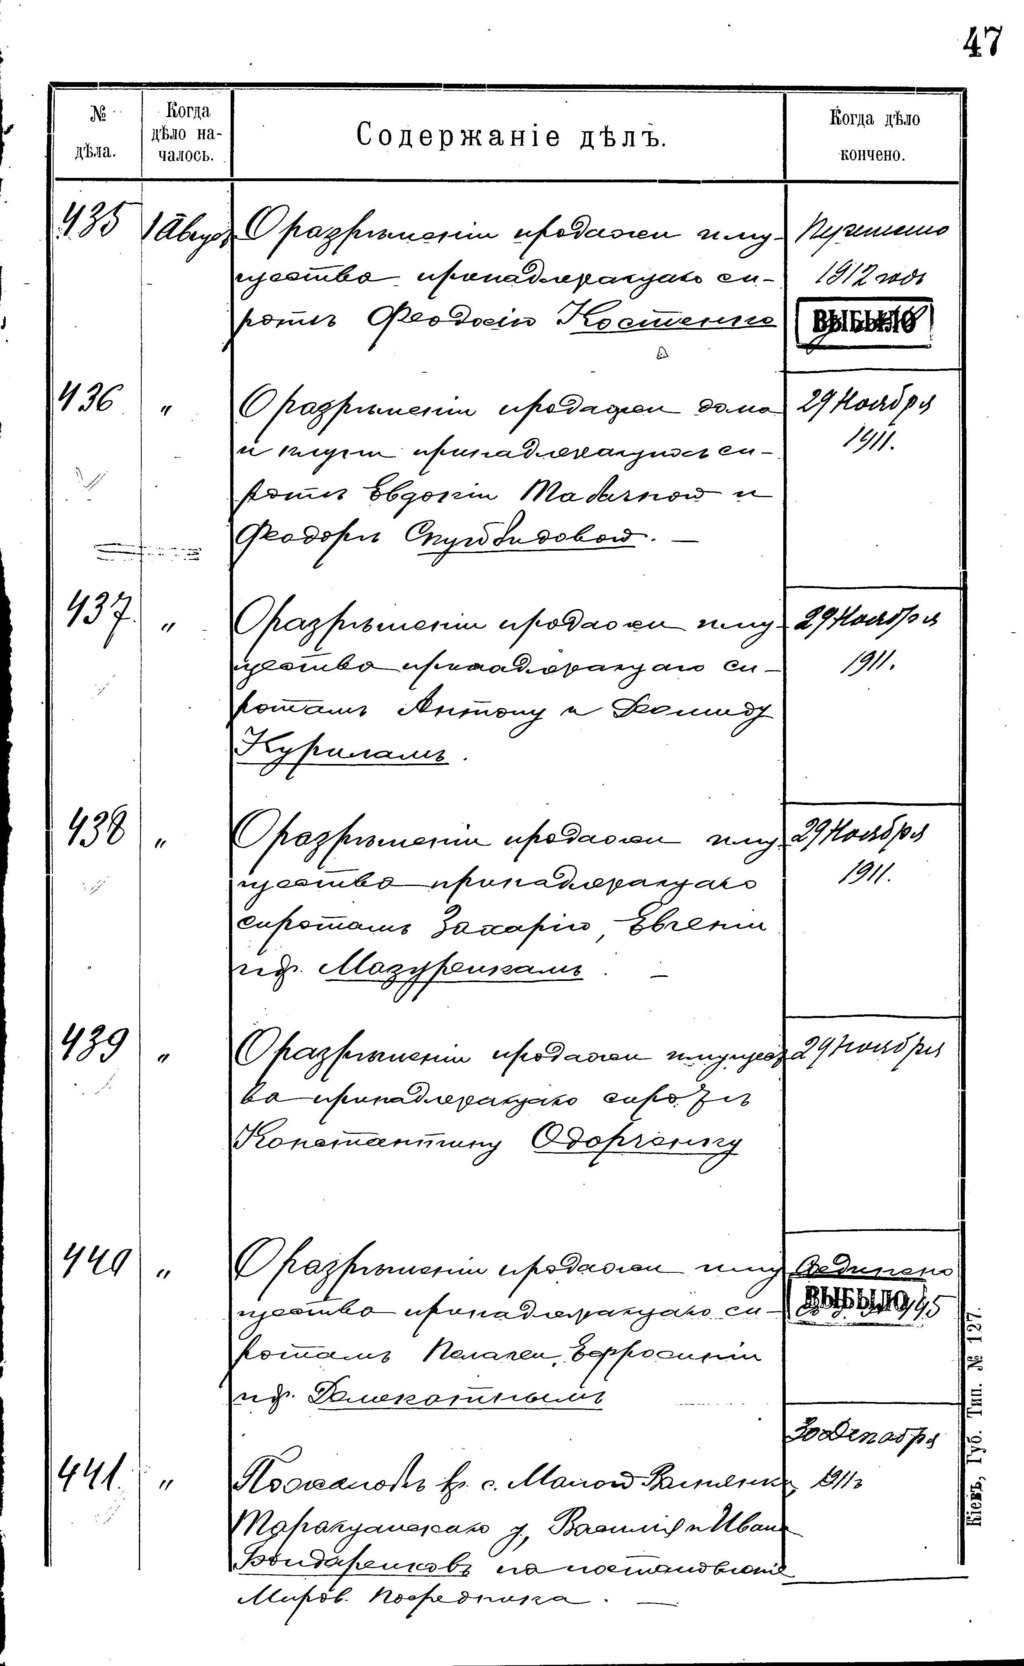 47
№ дѣла.
Когда дѣло началось.
Содержаніе дѣлъ.
Когда дѣло кончено.
435
1 Август
О разрѣшеніи продажи иму-
щества принадлежащаго си-
ротѣ Феодосію Костенко
1912 года
ВЫБЫЛО
436
"
О разрѣшеніи продажи дома
и принадлежащихъ си-
ротѣ Евдокіи Табачной и
Феодорѣ
29 Ноября
1911.
437
"
О разрѣшеніи продажи иму-
щества принадлежащаго си-
ротамъ Антону и Деомиду
Куриламъ.
29 Ноября
1911.
438
"
О разрѣшеніи продажи иму-
щества принадлежащаго
сиротамъ Захарію, Евгеніи
и др. Мазуренкамъ. —
29 Ноября
1911.
439
"
О разрѣшеніи продажи имущест
ва принадлежащаго сиротѣ
Константину Одорченку
29 Ноября
440
"
О разрѣшеніи продажи иму
щества принадлежащаго си-
ротамъ Пелагеи, Ефросиніи
и др.
Соединено
съ д. № 445
ВЫБЫЛО
441
"
По жалобѣ кр. с. Малой
Таращанскаго у, Василія и Ивана
Бондаренковъ на постановленіе
Миров. Посредника. —
30 Декабря
1911
Кіевъ, Губ. Тип. № 127.